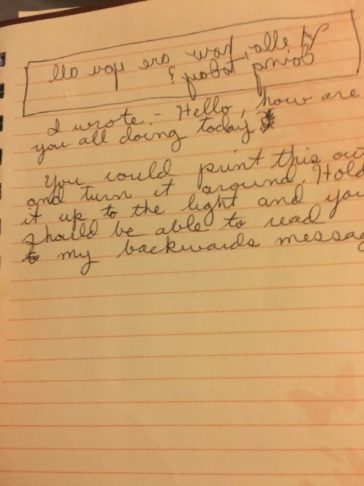 Hello, how are you all
doing today?
I wrote - Hello, how are
you all doing today
You could print this out
and turn it around. Hold
it up to the light and you
should be able to read
my backwards messag